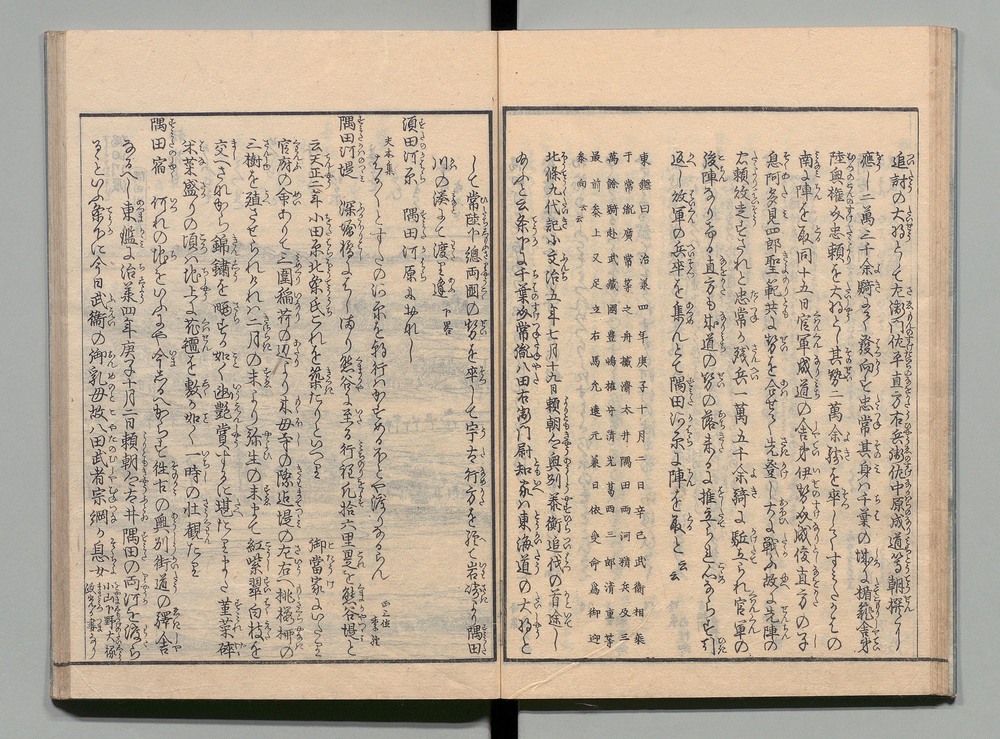 追討の大将として左衛門佐平直方右兵衛佐中原成道等朝撰に
應し二萬三千余騎にて發向す忠常其身ハ千葉の城に楯籠舎弟
陸奥権介忠頼を大将とし其勢二萬余騎を率し
南に陣を取同十五日官軍成道の舎弟伊勢介成俊直方の子
息阿多見四郎聖範共に勢を合せ先登して戦ふ故に先陣の
忠頼敗走すされと忠常か残兵一萬五千余騎に駈立られ官軍の
後陣なりける直方も成道の勢の落来るに推立られ心ならす引
返し敗軍の兵卒を集んとて隅田河原に陣を取と云云
東鑑曰治兼四年庚子十月二日辛巳武衛相乗
于常胤廣常等之舟檝濟太井隅田両河精兵及三
萬餘騎赴武藏國豊嶋権守清光葛西三郎清重等
最前参上又足立右馬允遠元兼日依受命爲御迎
参向云云
北條九代記ニ文治五年七月十九日頼朝公奥州泰衡追伐の首途し
あふと云条下に千葉介常胤八田右衛門尉知家ハ東海道の大将と
して常陸下總両國の勢を率して宇右行方を経て岩崎より隅田
川の湊にて渡り逢 下畧
須田河原 隅田河原に出れし
夫木集
すたの河原を朝行ハ 正三位
隅田河堤 深堀橋よりはしまり熊谷に至る行程凡拾六里是を熊谷堤と
云天正二年小田原北条氏これを築たりといへり 御當家にいたり
官府の命ありて三圍稲荷の辺より木母寺の際迄堤の左右へ桃桜柳の
三樹を殖させられけれハ二月の末より弥生の末まて紅紫翠白枝を
交へさなから錦繡を晒すか如く幽艶賞するに堪たりまた菫菜砕
米菜盛りの頃ハ地上に花氊を敷か如く一時の壮観たり
隅田宿 何れの地をいふにや今しるへからす往古の奥州街道の驛舎
なるへし東鑑に治兼四年庚子十月二日頼朝公太井隅田の両河を渡らせ
るといふ条下に今日武衛の御乳母故八田武者宗綱か息女 小山下野大掾政光か妻なり